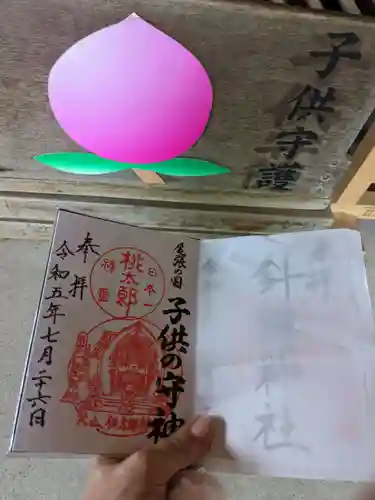 子供守護
尾張の国
子供の守神
日本一
桃太郎
神社
奉拝
令和五年七月二十六日
犬山
神社